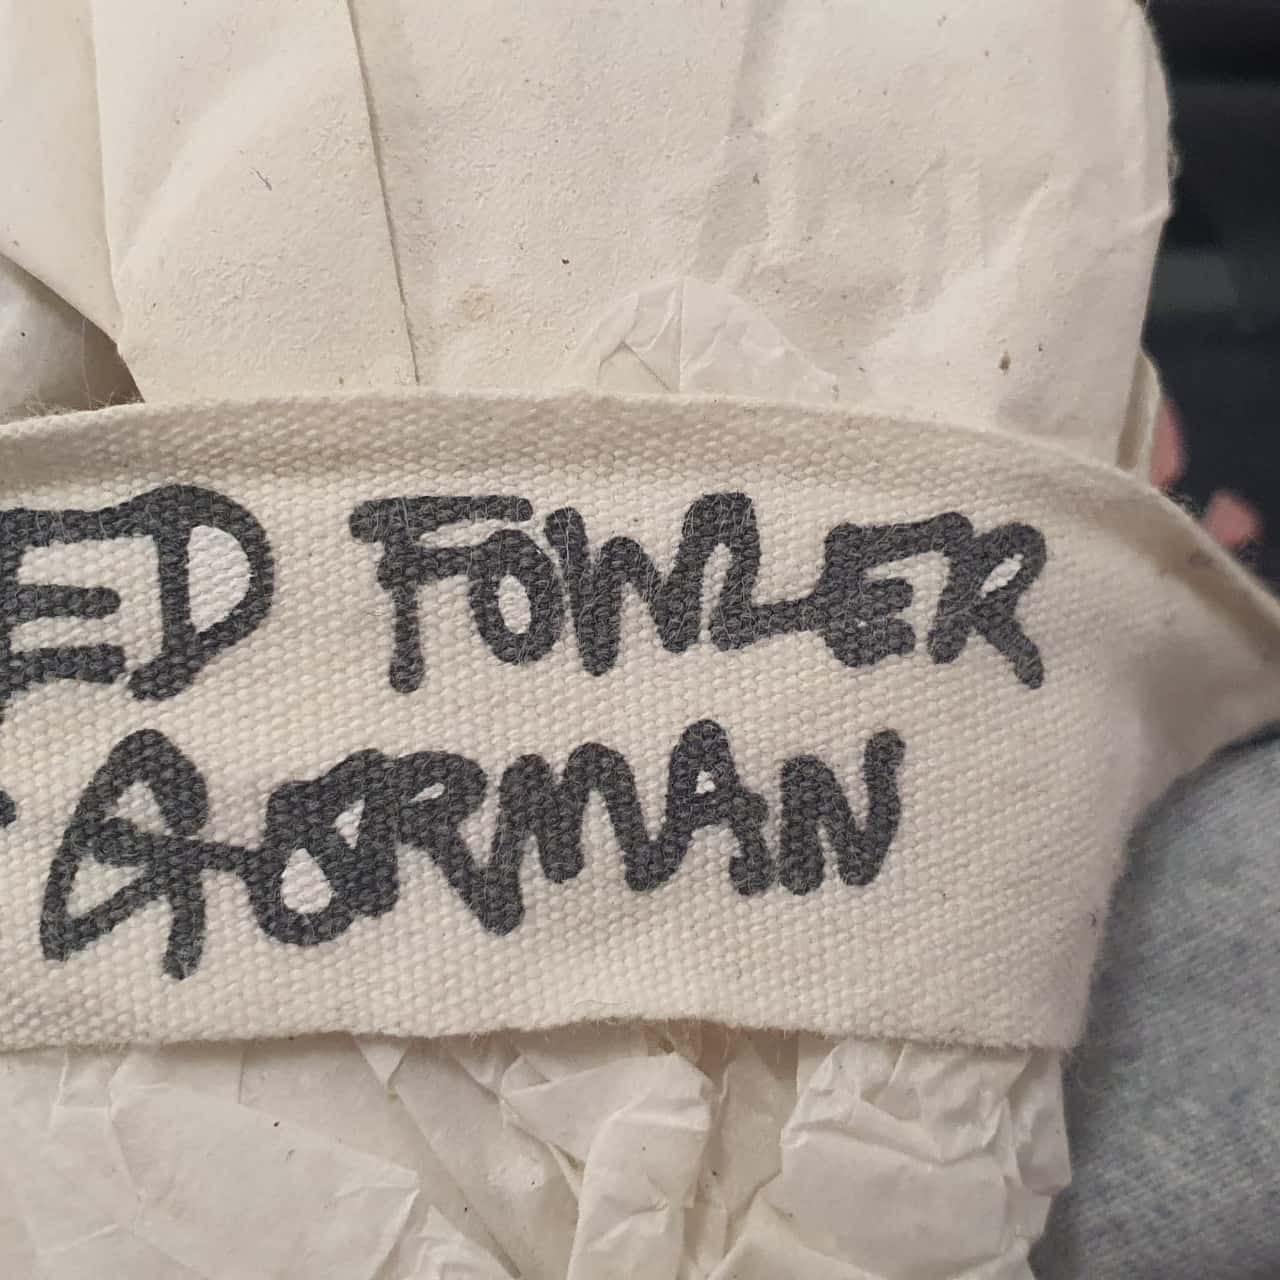 ED FOWLER
GORMAN